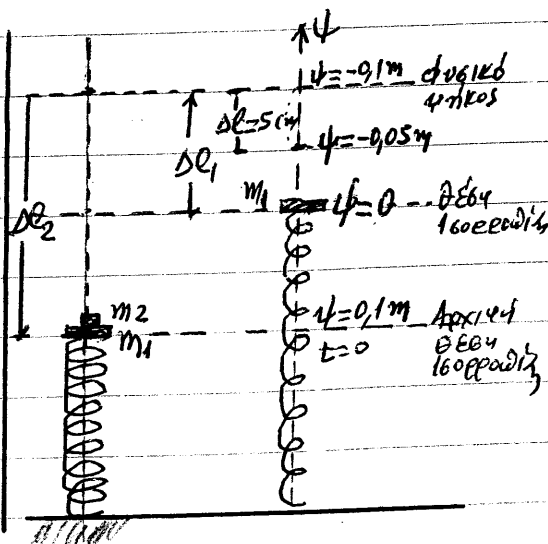 ψ
ψ=-0,1m φυσικό
μήκος
Δl=5cm
ψ=-0,05m
Δl1
Δl2
m1 ψ=0 θέση
ισορροπίας
m2
m1
ψ=0,1m Αρχική
t=0 θέση
ισορροπίας